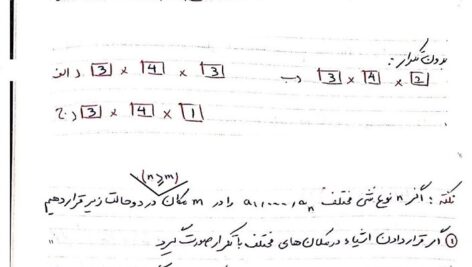 بدون تکرار:
الف) 3 × 4 × 3    ب) 3 × 4 × 2
ج) 3 × 4 × 1
(n ≥ m)
نکته: اگر n نوع شی مختلف a₁,...,aₙ را در m مکان در دو حالت زیر قرار دهیم
① اگر قرار دادن اشیاء در مکان های مختلف با تکرار صورت گیرد